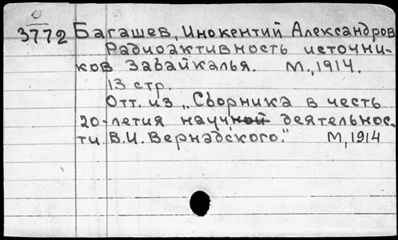 3772 Багашев, Инокентий Александров
Радиоактивность источни-
ков Забайкалья. М., 1914.
13 стр.
Отт. из „Сборника в честь
20-летия научной деятельнос-
ти В.И. Вернадского." М, 1914